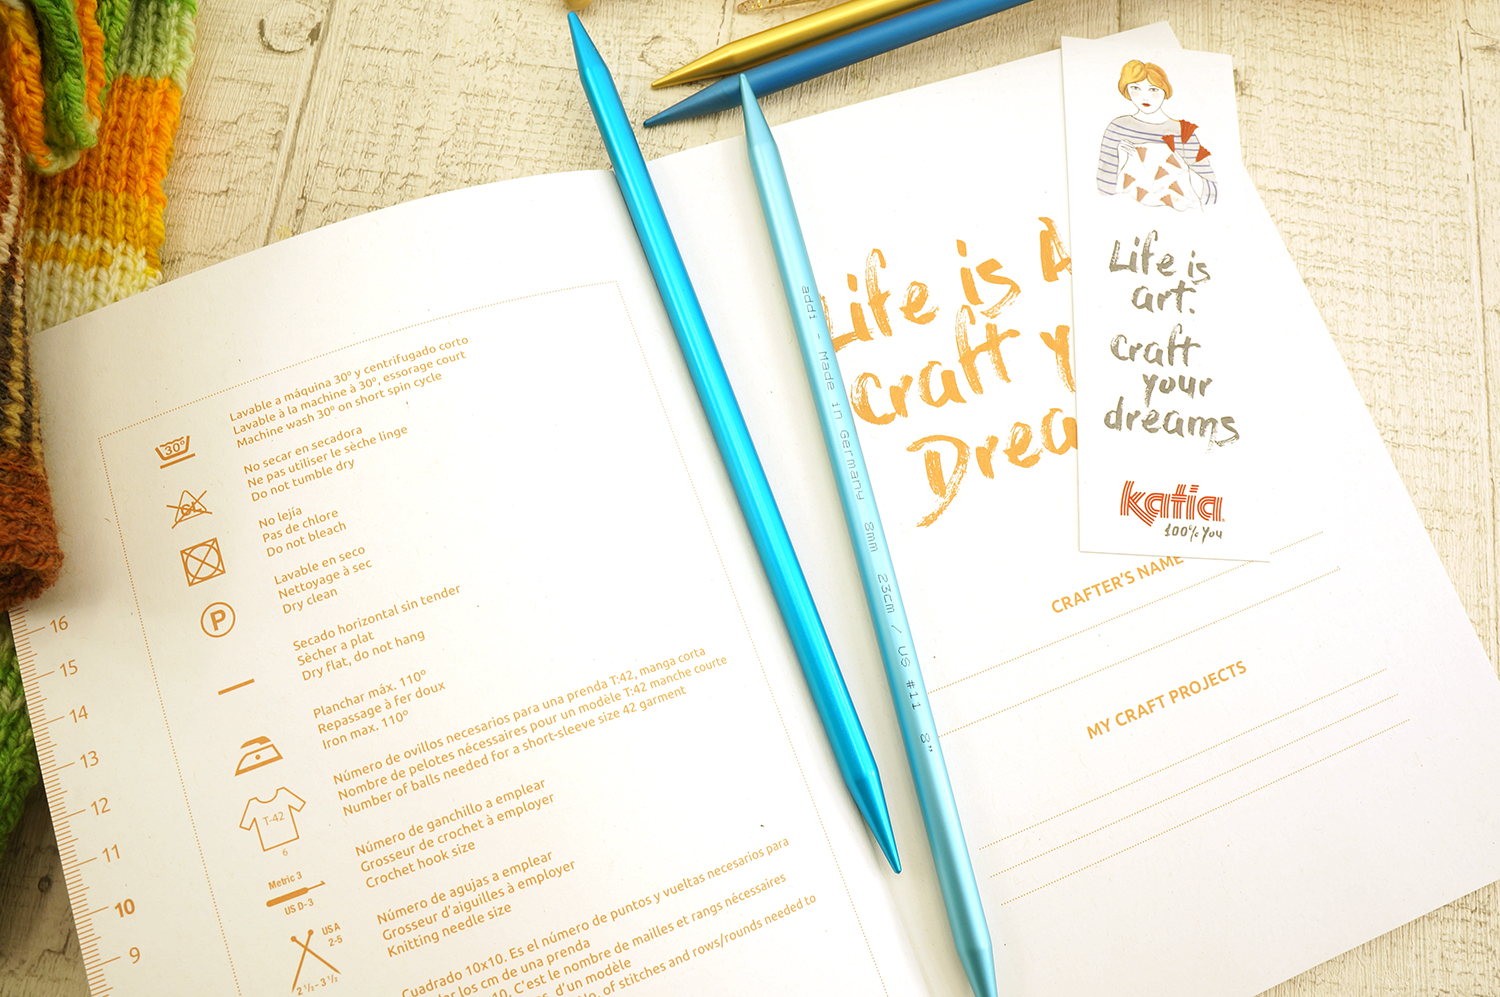 Lavable a máquina 30º y centrifugado corto
Lavable à la machine à 30º, essorage court
Machine wash 30º on short spin cycle
No secar en secadora
Ne pas utiliser le sèche linge
Do not tumble dry
No lejía
Pas de chlore
Do not bleach
Lavable en seco
Nettoyage à sec
Dry clean
Secado horizontal sin tender
Sècher a plat
Dry flat, do not hang
Planchar máx. 110º
Repassage à fer doux
Iron max. 110º
Número de ovillos necesarios para una prenda T:42, manga corta
Nombre de pelotes nécessaires pour un modèle T:42 manche courte
Number of balls needed for a short-sleeve size 42 garment
Número de ganchillo a emplear
Grosseur de crochet à employer
Crochet hook size
Número de agujas a emplear
Grosseur d'aiguilles à employer
Knitting needle size
Cuadrado 10x10. Es el número de puntos y vueltas necesarios para
los cm de una prenda
10. C'est le nombre de mailles et rangs nécessaires
d'un modèle
of stitches and rows/rounds needed to
30º
CL
P
T-42
6
Metric 3
US D-3
USA
2-5
2 ½ - 3 ½
16
15
14
13
12
11
10
9
addi - Made in Germany 8mm 23cm / US #11 8"
Life is A
Craft y
Drea
CRAFTER'S NAME
MY CRAFT PROJECTS
Life is
art.
Craft
your
dreams
katia
100% You